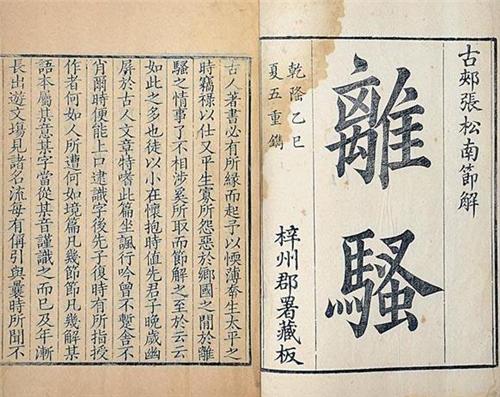 古郟張松南節解
離騷
梓州郡署藏板
乾隆乙巳
夏五重鐫
古人著書必有所緣而起予以慵薄幸生太平之
時竊祿以仕又平生寡所怨惡於鄉國之閒於離
騷之情事了不相涉奚所取而節解之至於云云
如此之多也徒以小在懷抱時值先君子晚歲幽
屏於古人文章特嗜此篇坐諷行吟曾不蹔舍不
肖爾時便能上口逮識字後先子復時有所指授
作者何如人所遭何如境篇凡幾節節凡幾解某
語本屬某意某字當從某音謹識之而已及年漸
長出遊文場見諸名流每有偁引與曩時所聞不